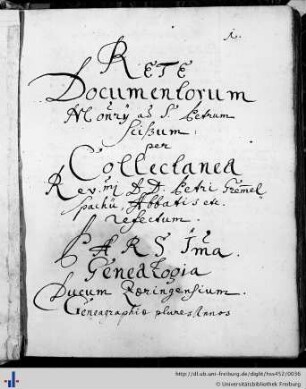 1.
RETE
Documentorum
Monrÿ ad S. Petrum
scißum.
per
Collectanea
Rev.mi D.D. Petri Gremel,
spachii, Abbatis etc.
refectum.
PARS Ima.
Genealogia
Ducum Zæringensium.
plures Annos
http://dl.ub.uni-freiburg.de/diglit/hs452/0036
© Universitätsbibliothek Freiburg